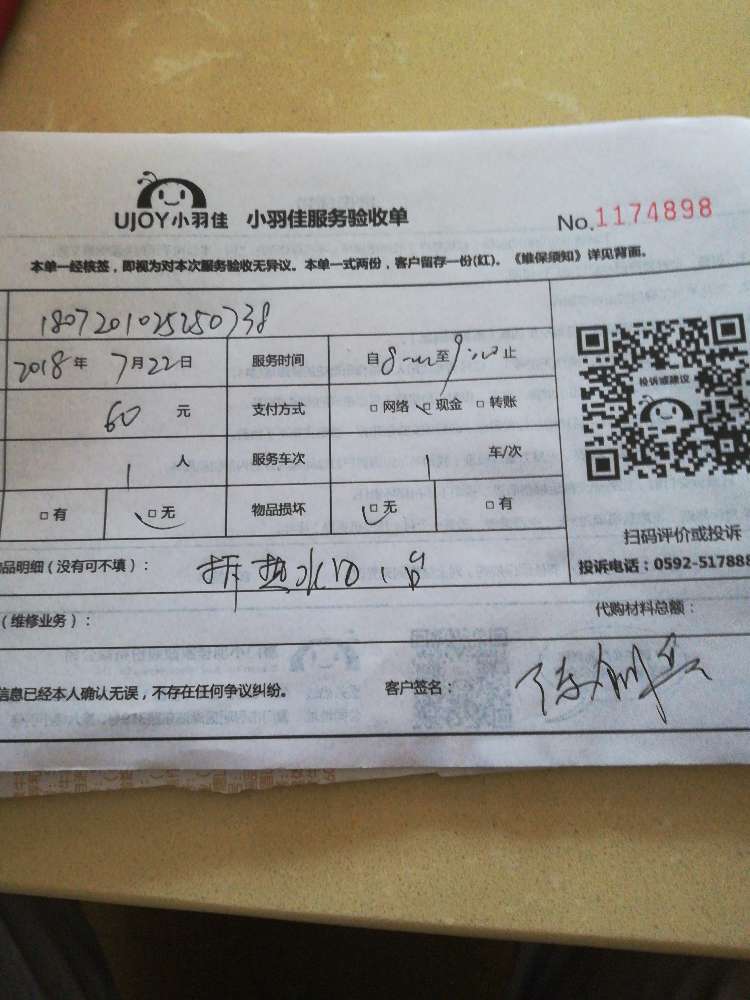 UJOY小羽佳 小羽佳服务验收单 No.1174898
本单一经核签，即视为对本次服务验收无异议。本单一式两份，客户留存一份(红)。《维保须知》详见背面。
1807201025250738
2018年 7月22日 服务时间 自8:00至9:00止
60元 支付方式 □网络 □现金 □转账
1人 服务车次 1车/次
□有 □无 物品损坏 □无 □有
投诉或建议
扫码评价或投诉
投诉电话：0592-517888
品明细（没有可不填）： 拆热水口1台
（维修业务）： 代购材料总额：
信息已经本人确认无误，不存在任何争议纠纷。 客户签名：